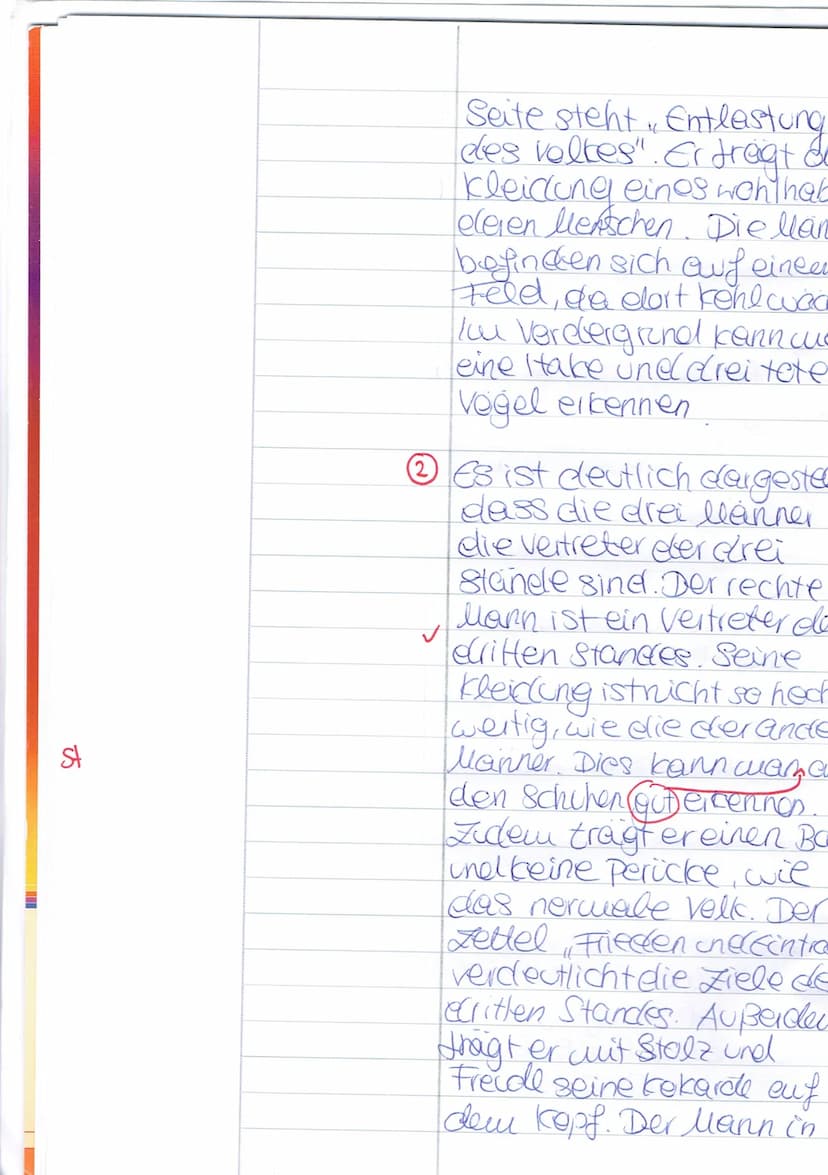 Seite steht „Entlastung
des Volkes". Er trägt d
Kleidung eines wohlhab
deren Menschen. Die Män
befinden sich auf einem
Feld, da dort Kohl wäc
Im Vordergrund kann m
eine Hake und drei tote
Vögel erkennen.
② Es ist deutlich dargeste
dass die drei Männer
die Vertreter der drei
Stände sind. Der rechte
Mann ist ein Vertreter d
✓ dritten Standes. Seine
Kleidung ist nicht so hoch
wertig, wie die der ande
St Männer. Dies kann man a
den Schuhen gut erkennen.
Zudem trägt er einen Ba
und keine Perücke, wie
das normale Volk. Der
Zettel „Frieden und Eintra
verdeutlicht die Ziele de
dritten Standes. Außerdem
trägt er mit Stolz und
Freude seine Kokarde auf
dem Kopf. Der Mann in